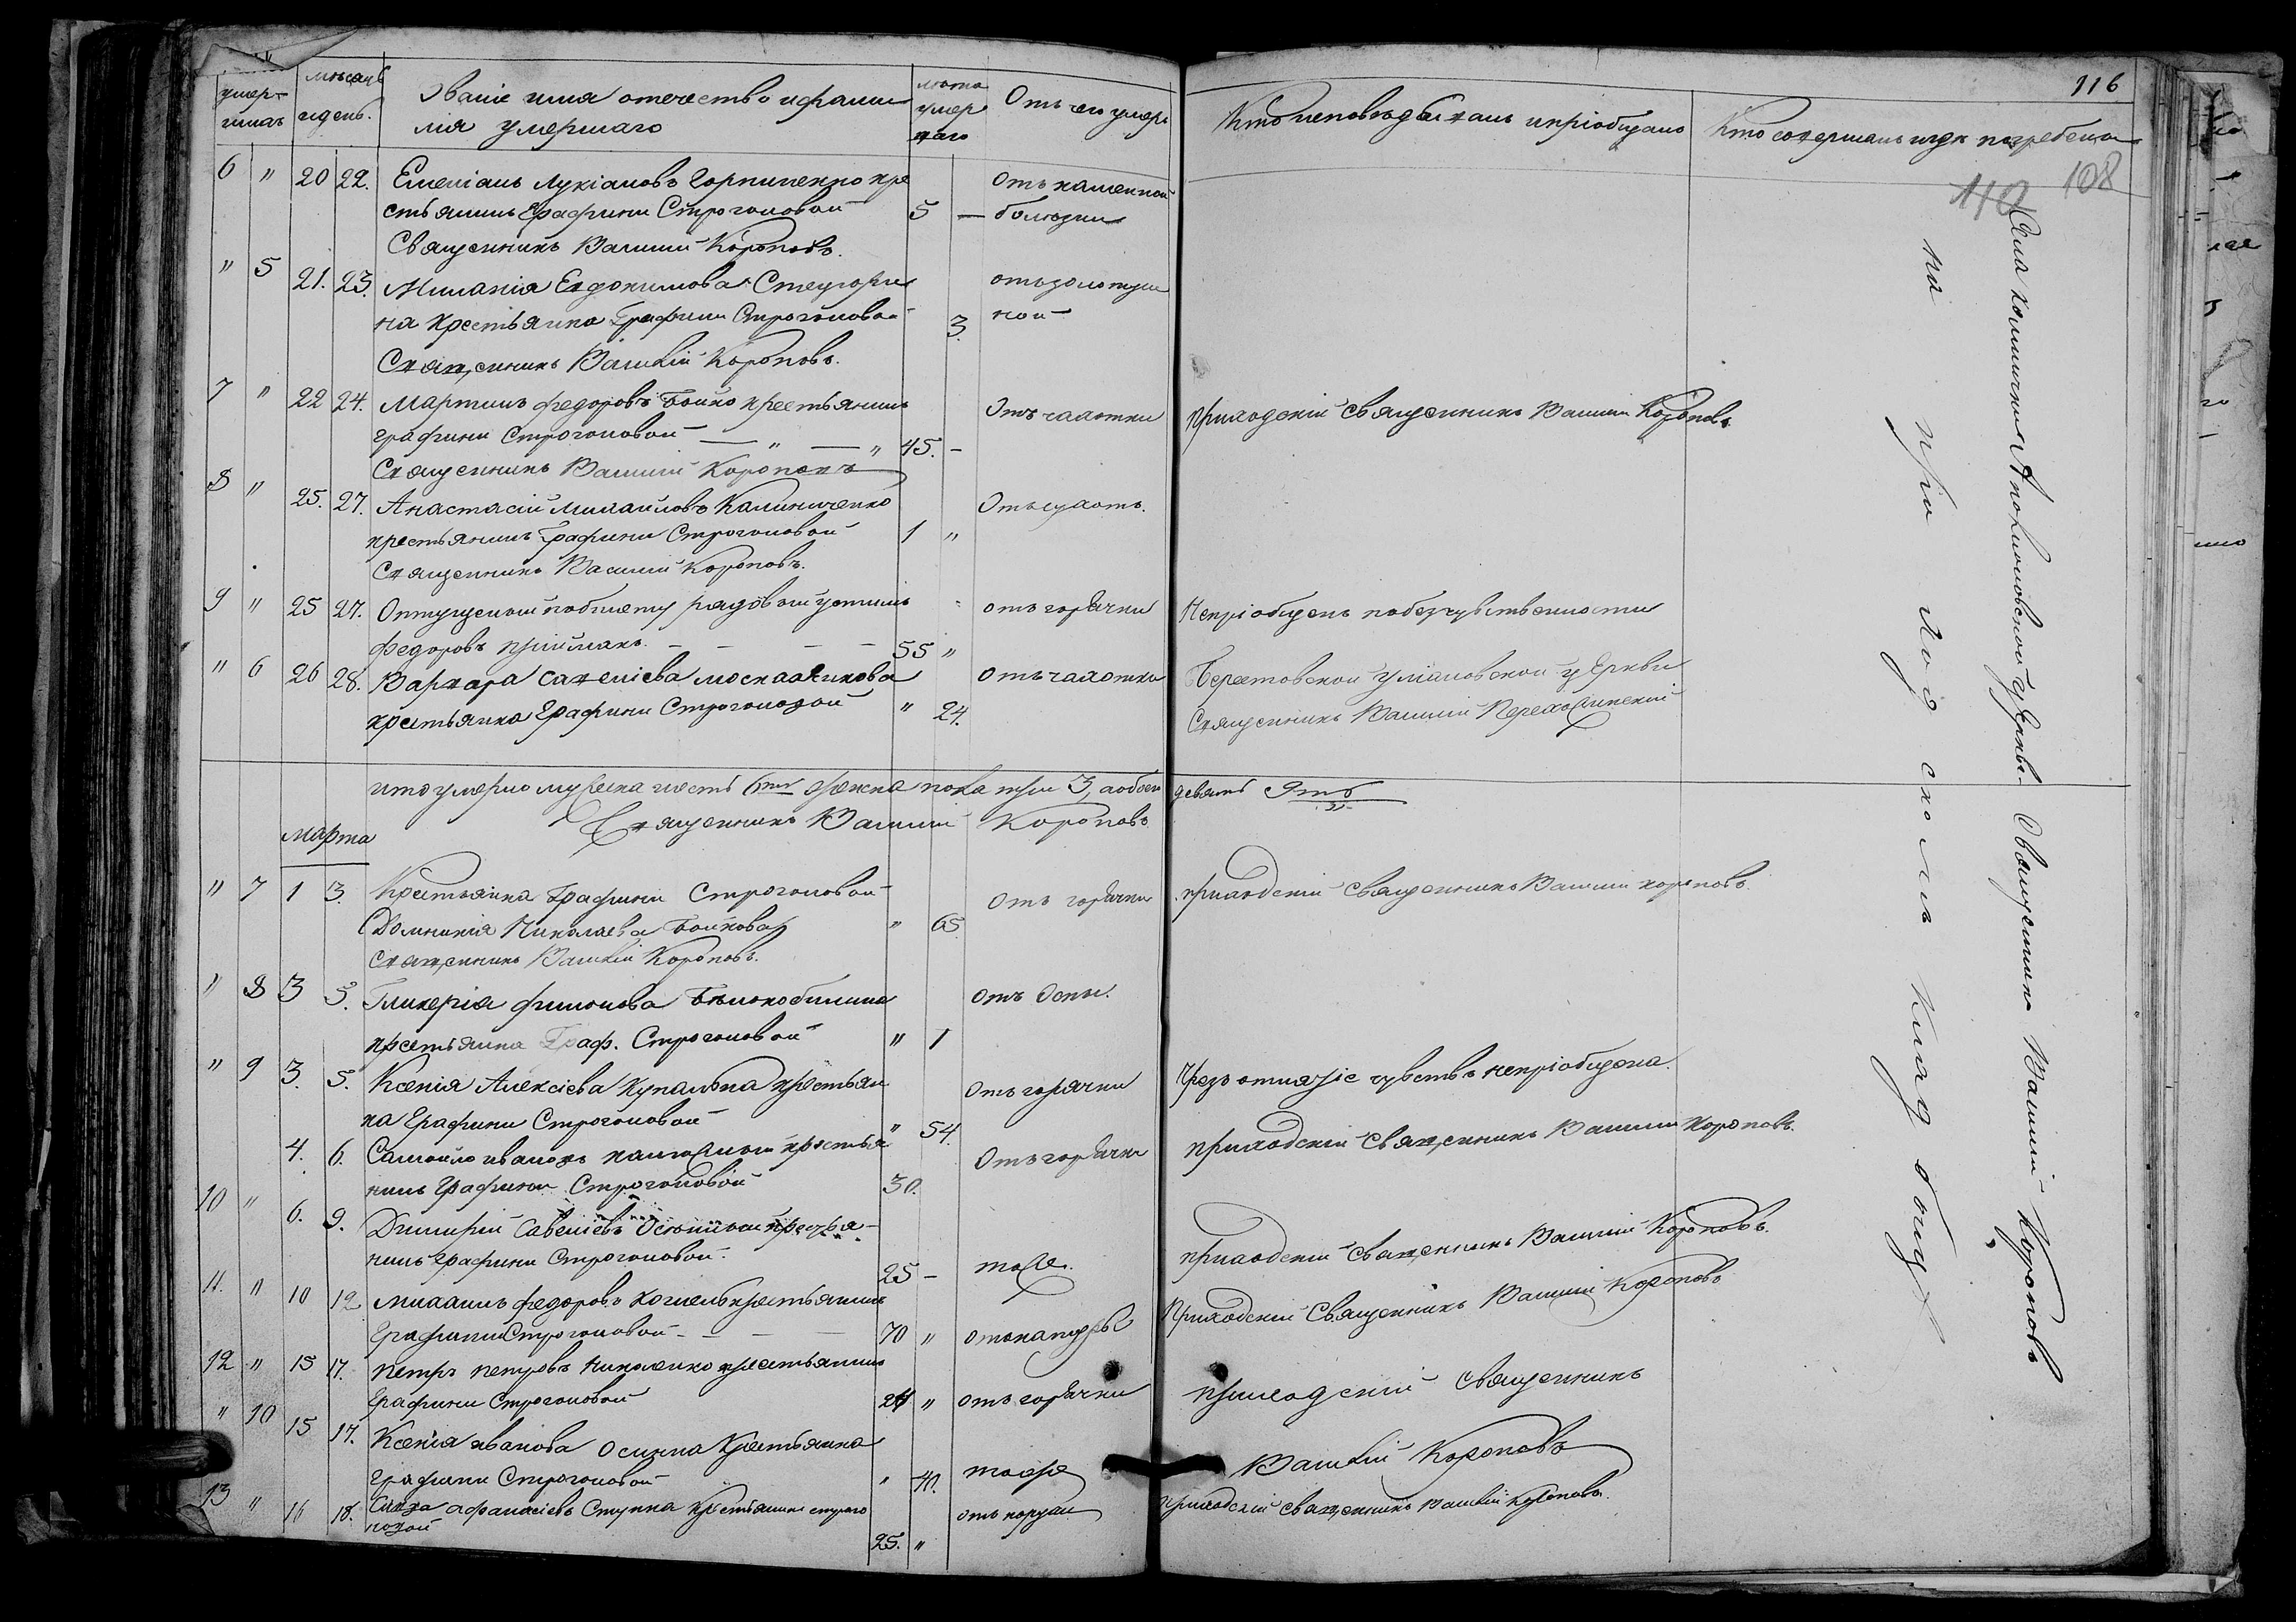 116
108
110
умер-
шихъ
мѣсяцъ
и день.
Званіе имя отечество и фами
лія умершаго
лѣта
умер
шаго
Отъ чего умеръ
Кто исповѣдывалъ и пріобщалъ
Кто совершалъ и гдѣ погребены
6 " 20 22. Емеліанъ Лукіановъ Горпиненко кре
стьянинъ Графини Строгоновой 5 —
Отъ каменной
болюзни
Священникъ Василій Короповъ.
" 5 21. 23. Миланія Евдокимова
на крестьянка Графини Строгоновой 3.
отъ золотуш
ной
Священникъ Василій Короповъ.
7 " 22 24. Мартинъ Федоровъ Бойко крестьянинъ
Графини Строгоновой — " — " 45. -
Отъ чахотки
приходскій Священникъ Василій Короповъ
Священникъ Василій Короповъ
8 " 25. 27. Анастасій Михаиловъ Калиниченко
крестьянинъ Графини Строгоновой 1 "
Отъ сухотъ.
Священникъ Василій Короповъ.
9 " 25 27. Отпущеной по билету рядовой Устинъ
Федоровъ Приймакъ. - - - - 55 "
отъ горячки
Непріобщенъ по безчувственности
" 6 26 28. Варвара Савеліева
крестьянка Графини Строгоновой " 24.
отъ чахотки
Берестовской Успіановской Церкви
Священникъ Василій
итого умерло мужеска шесть 6ть женска пола три 3, а обоего
девять 9ть
Священникъ Василій Короповъ
марта
" 7 1 3. Крестьянка Графини Строгоновой
Домникія Николаева Бойкова " 65
Отъ горячки
приходскій Священникъ Василій Короповъ.
Священникъ Василій Короповъ.
" 8 3 5. Гликерія Филипова Бѣлокобилина
крестьянка Граф. Строгоновой " 1
отъ Оспы.
" 9 3. 5. Ксенія Алексіева Купальна крестьян
ка Графини Строгоновой " 54.
Отъ горячки
Чрезъ отнятіе чувствъ непріобщена.
4. 6. Самойло Ивановъ крестья
нинъ Графини Строгоновой 30.
Отъ горячки
приходскій Священникъ Василій Короповъ.
10 " 6. 9. Димитрій Савеліевъ крестья-
нинъ Графини Строгоновой. 25 -
тоже.
приходскій Священникъ Василій Короповъ.
11. " 10 12 Михаилъ Федоровъ крестьянинъ
Графини Строгоновой - — — 70 "
Приходскій Священникъ Василій Короповъ
12 " 15 17. Петръ Петровъ Николенко крестьянинъ
Графини Строгоновой 24 "
отъ горячки
приходскій Священникъ
" 10 15 17. Ксенія Иванова Осипна Крестьянка
Графини Строгоновой " 40.
тоже
Василій Короповъ
13 " 16 18. Савва Афанасіевъ Ступка Крестьянинъ строго
новой 25. "
приходскій Священникъ Василій Короповъ.
на при ход ском Клад бищѣ
Села Священникъ Василій Короповъ